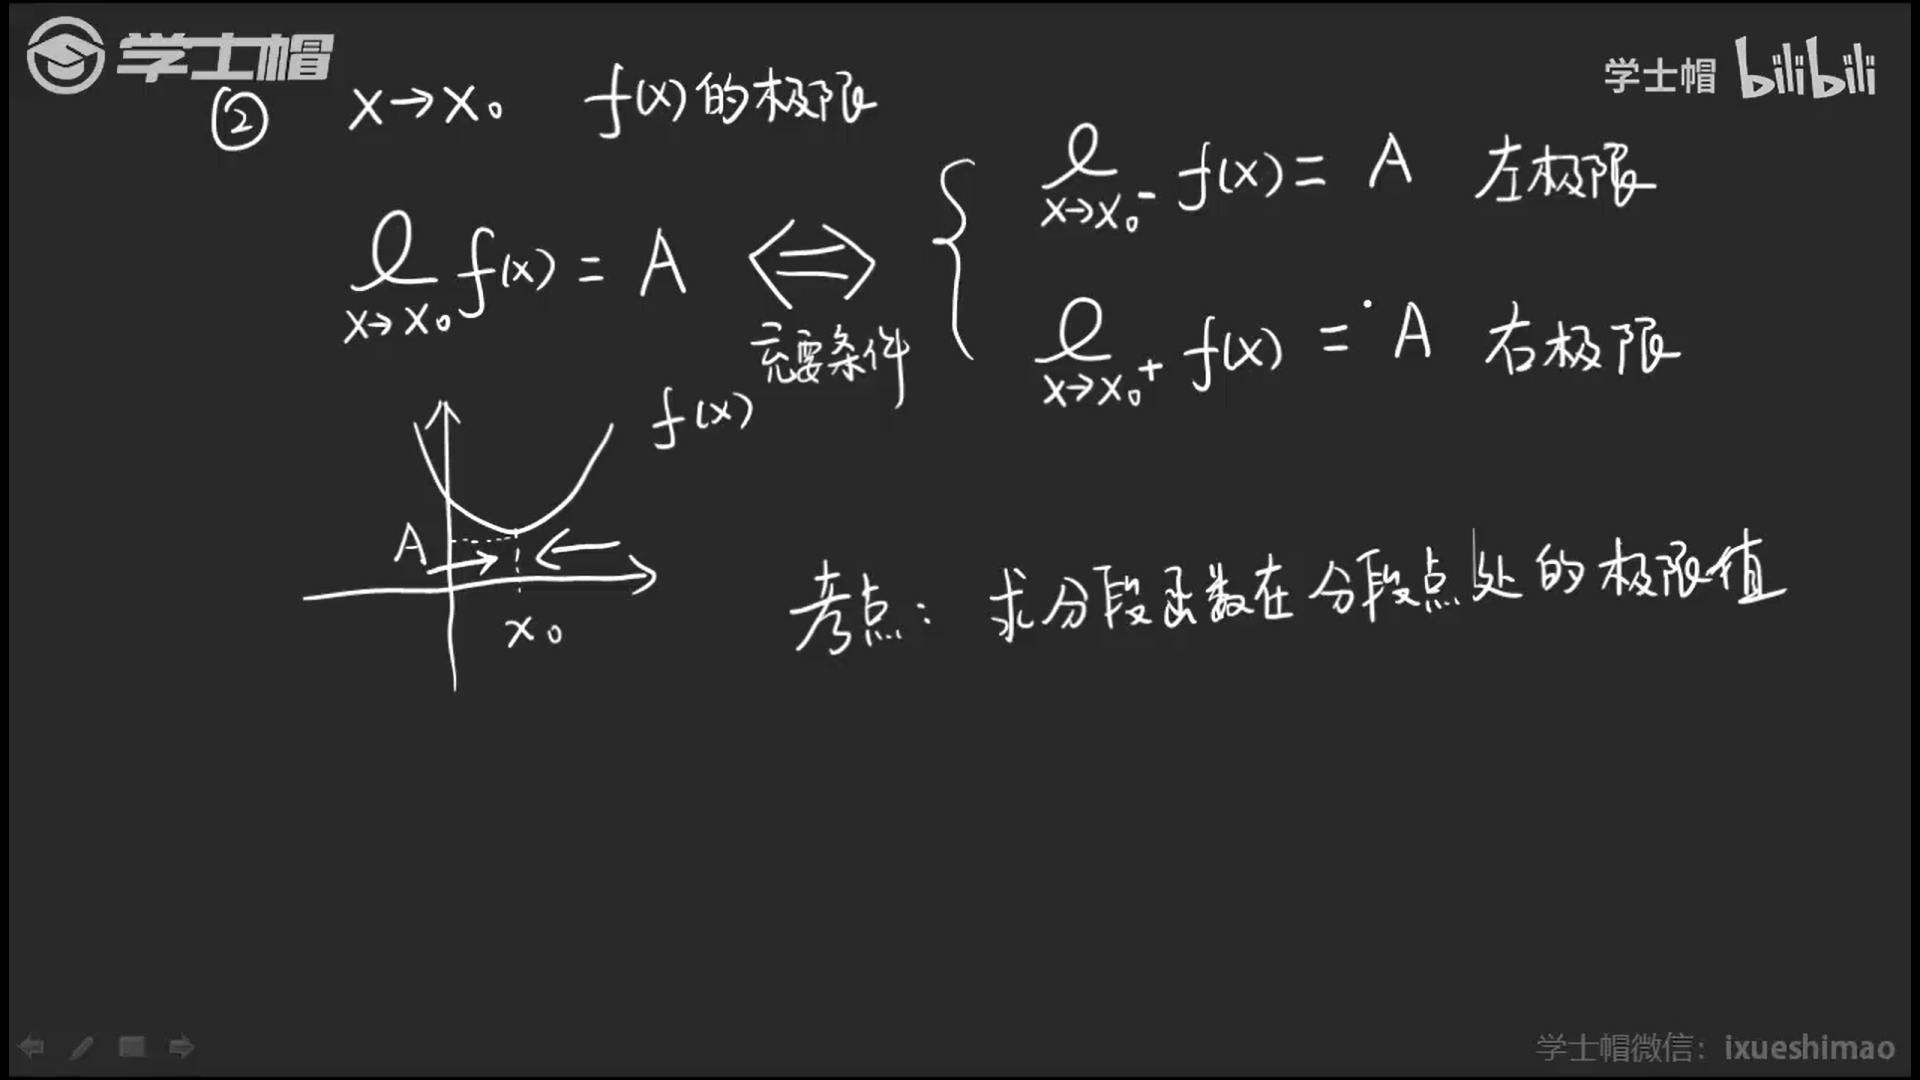 学士帽
学士帽 bilibili
② x→x₀ f(x)的极限
lim x→x₀ f(x) = A ⟺ { lim x→x₀⁻ f(x) = A 左极限
充要条件
lim x→x₀⁺ f(x) = A 右极限
f(x)
A
x₀
考点：求分段函数在分段点处的极限值
学士帽微信：ixueshimao